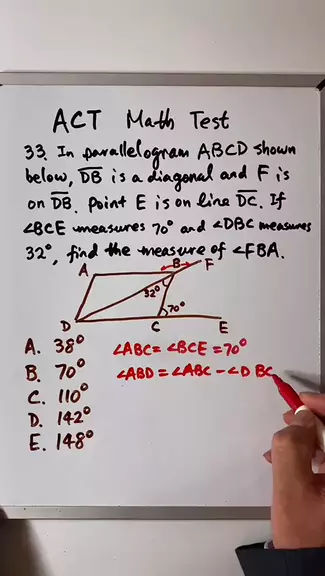 ACT Math Test
33. In parallelogram ABCD shown
below, DB is a diagonal and F is
on DB. Point E is on line DC. If
∠BCE measures 70° and ∠DBC measures
32°, find the measure of ∠FBA.
A B F
32° 70°
D C E
A. 38°
B. 70°
C. 110°
D. 142°
E. 148°
∠ABC = ∠BCE = 70°
∠ABD = ∠ABC - ∠DBC